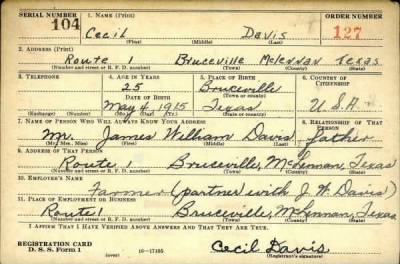 SERIAL NUMBER 1. NAME (Print) ORDER NUMBER
104 Cecil Davis 127
(First) (Middle) (Last)
2. ADDRESS (Print)
Route 1 Bruceville McLennan Texas
(Number and street or R. F. D. number) (Town) (County) (State)
3. TELEPHONE 4. AGE IN YEARS 5. PLACE OF BIRTH 6. COUNTRY OF CITIZENSHIP
25 Bruceville
(Town or county)
DATE OF BIRTH
May 4, 1915 Texas U.S.A.
(Exchange) (Number) (Mo.) (Day) (Yr.) (State or country)
7. NAME OF PERSON WHO WILL ALWAYS KNOW YOUR ADDRESS 8. RELATIONSHIP OF THAT PERSON
Mr. James William Davis father
(Mr., Mrs., Miss) (First) (Middle) (Last)
9. ADDRESS OF THAT PERSON
Route 1 Bruceville, McLennan, Texas
(Number and street or R. F. D. number) (Town) (County) (State)
10. EMPLOYER'S NAME
Farmer (partner with J. W. Davis)
11. PLACE OF EMPLOYMENT OR BUSINESS
Route 1 Bruceville, McLennan, Texas
(Number and street or R. F. D. number) (Town) (County) (State)
I AFFIRM THAT I HAVE VERIFIED ABOVE ANSWERS AND THAT THEY ARE TRUE.
REGISTRATION CARD
D. S. S. Form 1 16—17105 Cecil Davis
(Registrant's signature)